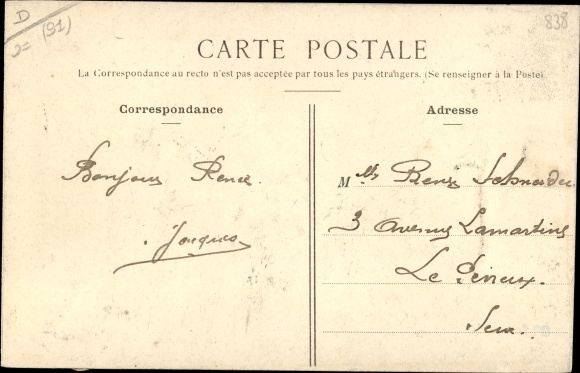 D
2= (91)
838
CARTE POSTALE
La Correspondance au recto n'est pas acceptée par tous les pays étrangers. (Se renseigner à la Poste)
Correspondance
Adresse
Bonjour Renée.
Jacques
Mlle
3 avenue Lamartine
Le Perreux.
Seine.